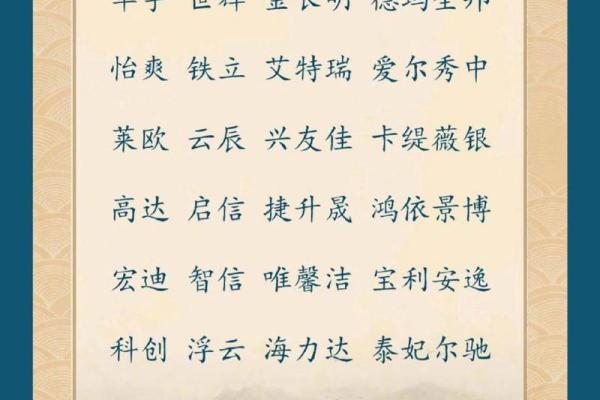 怡爽 铁立 艾特瑞 爱尔秀中
莱欧 云辰 兴友佳 卡缇薇银
高达 启信 捷升晟 鸿依景博
宏迪 智信 唯馨洁 宝利安逸
科创 浮云 海力达 泰妃尔驰